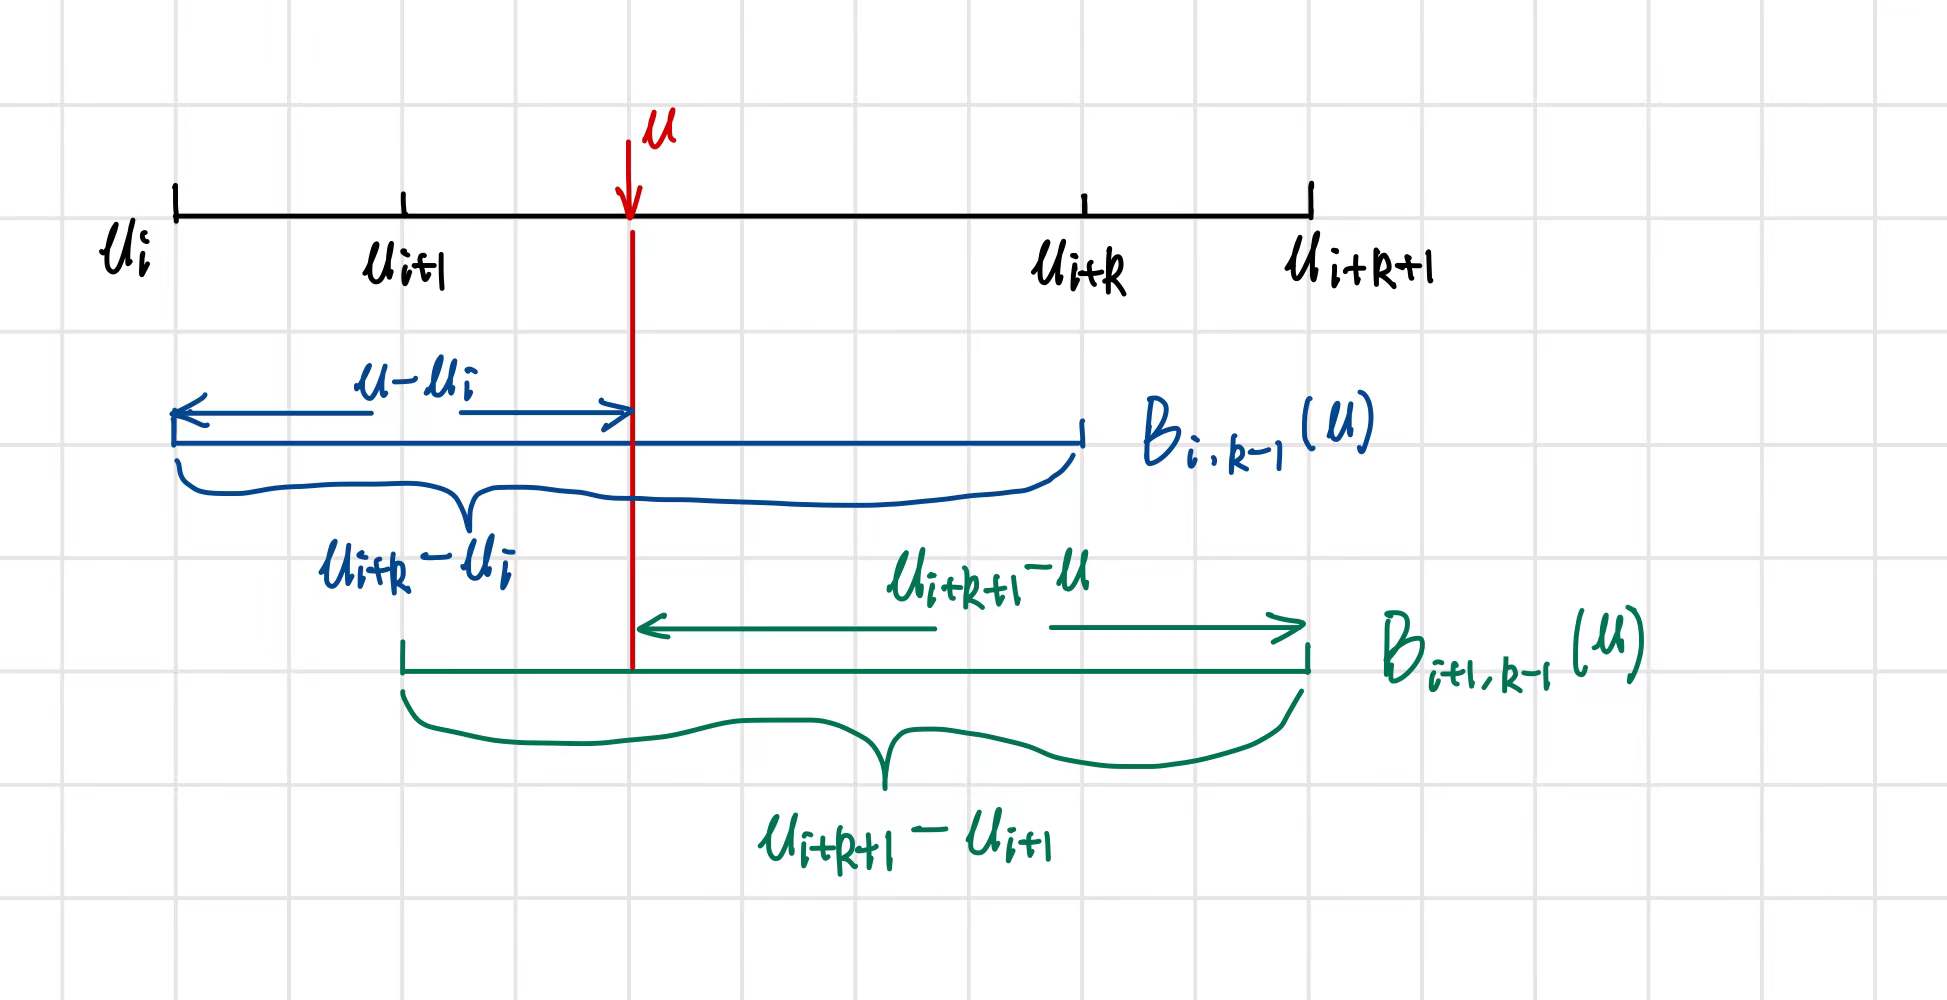 u
u_i u_{i+1} u_{i+k} u_{i+k+1}
u-u_i
B_{i,k-1}(u)
u_{i+k}-u_i
u_{i+k+1}-u
B_{i+1,k-1}(u)
u_{i+k+1}-u_{i+1}